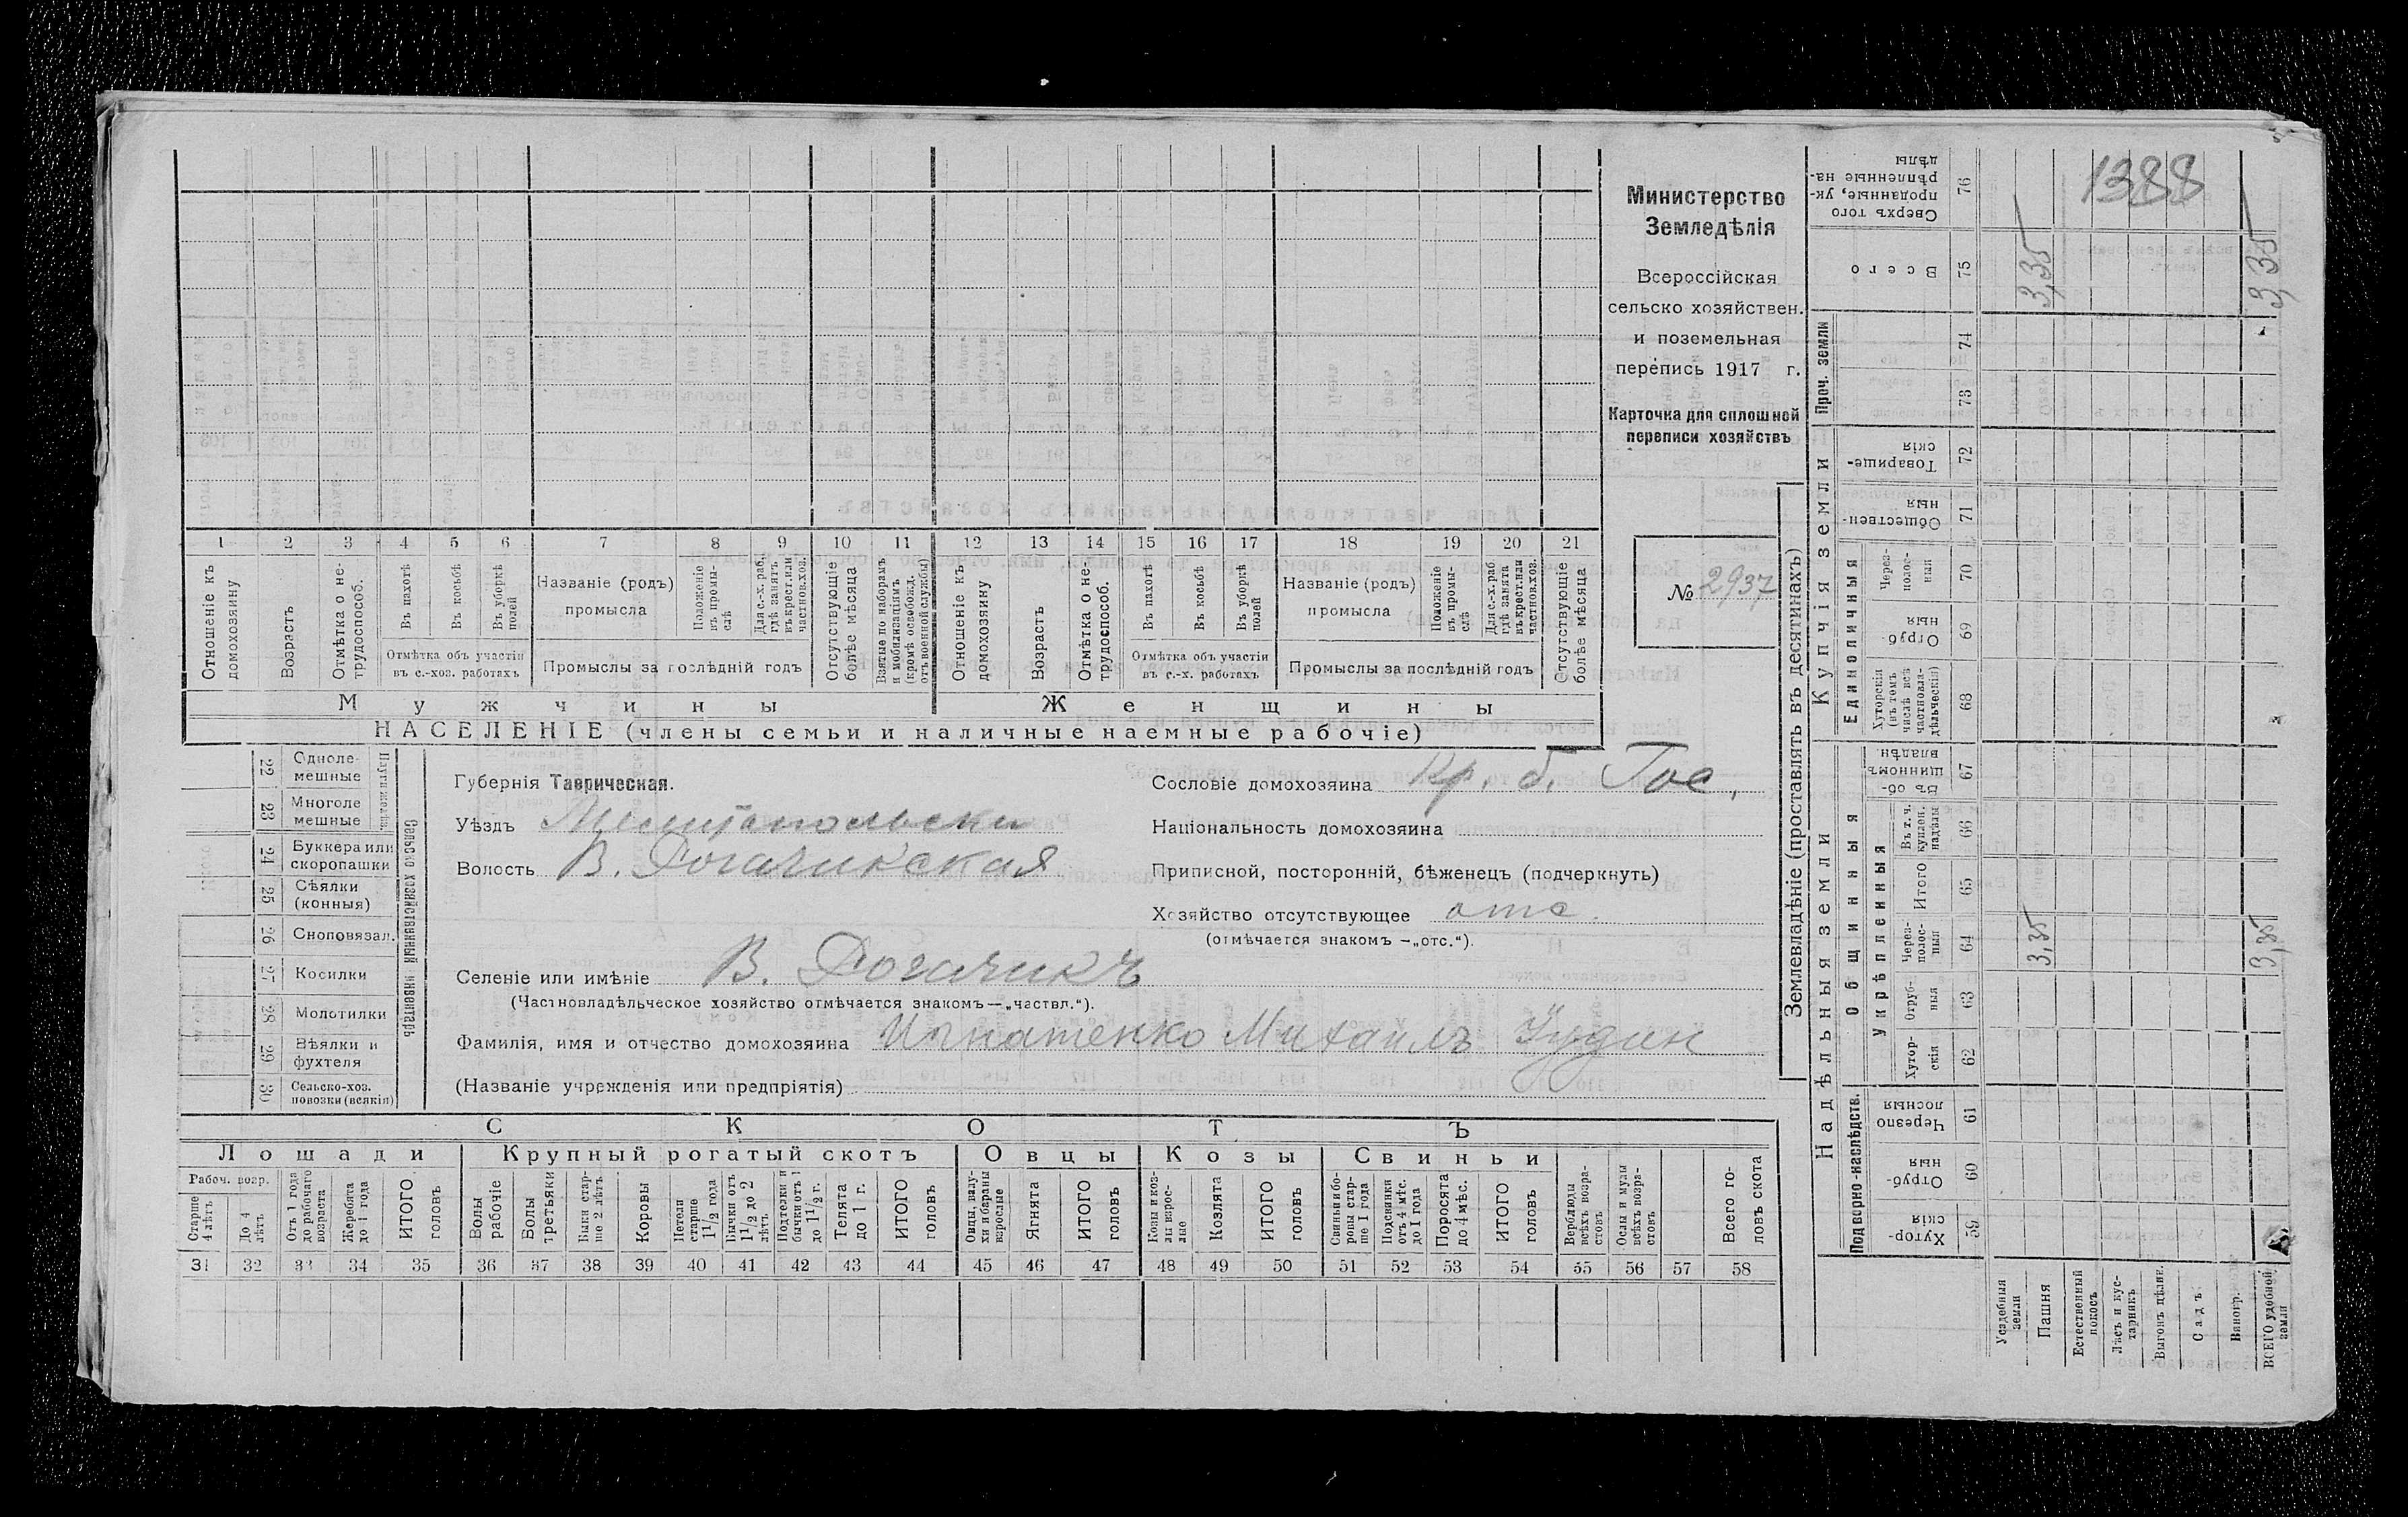 1388
Министерство
Земледѣлія
Всероссійская
сельско хозяйствен.
и поземельная
перепись 1917 г.
Карточка для сплошной
переписи хозяйствъ
№ 2937
1 2 3 4 5 6 7 8 9 10 11 12 13 14 15 16 17 18 19 20 21
Отношеніе къ домохозяину
Возрастъ
Отмѣтка о не-трудоспособ.
Въ пахотѣ
Въ косьбѣ
Въ уборкѣ полей
Отмѣтка объ участіи въ с.-хоз. работахъ
Названіе (родъ) промысла
Положеніе въ промы-слѣ
Для с.-х. раб. гдѣ занятъ въ крест. или частнов. хоз.
Промыслы за послѣдній годъ
Отсутствующіе болѣе мѣсяца
Взятые по наборамъ и мобилизаціямъ (кромѣ освобожд. отъ военной службы)
Отношеніе къ домохозяину
Возрастъ
Отмѣтка о не-трудоспособ.
Въ пахотѣ
Въ косьбѣ
Въ уборкѣ полей
Отмѣтка объ участіи въ с.-х. работахъ
Названіе (родъ) промысла
Положеніе въ промы-слѣ
Для с.-х. раб гдѣ занята въ крест. или частнов. хоз.
Промыслы за послѣдній годъ
Отсутствующіе болѣе мѣсяца
Мужчины Женщины
НАСЕЛЕНІЕ (члены семьи и наличные наемные рабочіе)
Сельско хозяйственный инвентарь
22 Одноле-мешные
23 Многоле мешные
24 Буккера или скоропашки
25 Сѣялки (конныя)
26 Сноповязал.
27 Косилки
28 Молотилки
29 Вѣялки и фухтеля
30 Сельско-хоз. повозки (всякія)
Губернія Таврическая.
Уѣздъ Мелитопольски
Волость В. Рогачикская
Селеніе или имѣніе В. Рогачикъ
(Частновладѣльческое хозяйство отмѣчается знакомъ—„частвл.“).
Сословіе домохозяина Кр. б. Гос.
Національность домохозяина
Приписной, посторонній, бѣженецъ (подчеркнуть)
Хозяйство отсутствующее отс.
(отмѣчается знакомъ —„отс.“).
Фамилія, имя и отчество домохозяина Игнатенко Михаилъ
(Названіе учрежденія или предпріятія)
СКОТЪ
Лошади Крупный рогатый скотъ Овцы Козы Свиньи
Рабоч. возр.
Старше 4 лѣтъ
До 4 лѣтъ
Отъ 1 года до рабочаго возраста
Жеребята до 1 года
ИТОГО головъ
Волы рабочіе
Волы третьяки
Быки стар-ше 2 лѣтъ
Коровы
Нетели старше 1 1/2 года
Бычки отъ 1 1/2 до 2 лѣтъ
Подтелки и бычки отъ 1 до 1 1/2 г.
Телята до 1 г.
ИТОГО головъ
Овцы, валу-хи и бараны взрослые
Ягнята
ИТОГО головъ
Козы и коз-лы взрос-лые
Козлята
ИТОГО головъ
Свиньи и бо-ровы стар-ше 1 года
Подсвинки отъ 4 мѣс. до 1 года
Поросята до 4 мѣс.
ИТОГО головъ
Верблюды всѣхъ возра-стовъ
Ослы и мулы всѣхъ возра-стовъ
Всего го-ловъ скота
31 32 33 34 35 36 37 38 39 40 41 42 43 44 45 46 47 48 49 50 51 52 53 54 55 56 57 58
Землевладѣніе (проставлять въ десятинахъ)
Надѣльныя земли Купчія земли Проч. земли
Подворно-наслѣдств. Общинныя Единоличныя
Укрѣпленныя
Хутор-скія 59
Отруб-ныя 60
Черезпо лосныя 61
Хутор-скія 62
Отруб-ныя 63
Через-полос-ныя 64
Итого 65
Въ т. ч. куплен. надѣлы 66
Въ об-щинномъ владѣн. 67
Хуторскія (въ томъ числѣ всѣ частновла-дѣльческія) 68
Отруб ныя 69
Через-полос-ныя 70
Обществен-ныя 71
Товарище-скія 72
73 74
Всего 75
Сверхъ того проданные, ук-рѣпленные на-дѣлы 76
Усадебныя земли
Пашня 3,35 3,35
Естественный покосъ
Лѣсъ и кус-тарникъ
Выгонъ цѣлин.
Садъ.
Виногр.
ВСЕГО удобной земли 3,35 3,35